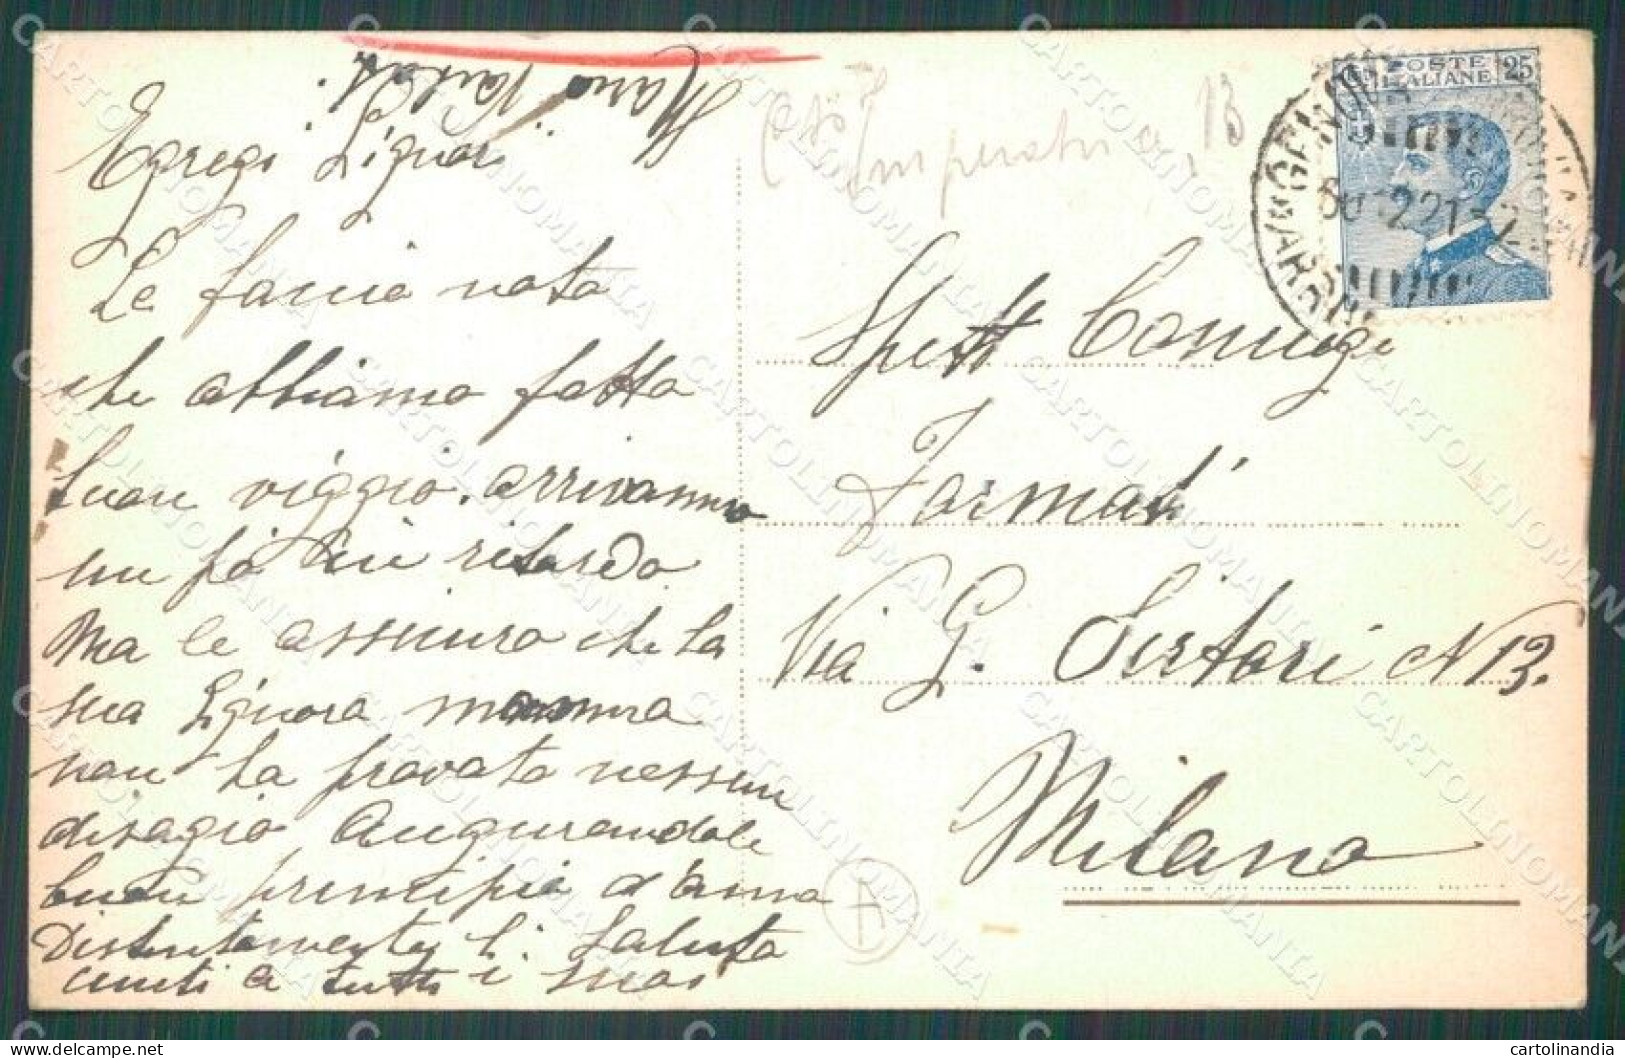 Egregi Signori
Le faccio noto
che abbiamo fatto
buon viggio. arrivammo
un pò in ritardo
Ma le assicuro che la
sua Signora mamma
non ha provato nessun
disagio Augurandole
buon principio d'anno
Distintamente li Saluto
uniti a tutti i suoi
Mario
Imperatrice
13
POSTE
ITALIANE
25
Spett Coniugi
Formenti
Via G. Sirtori N 13.
Milano
A
cartolinandia